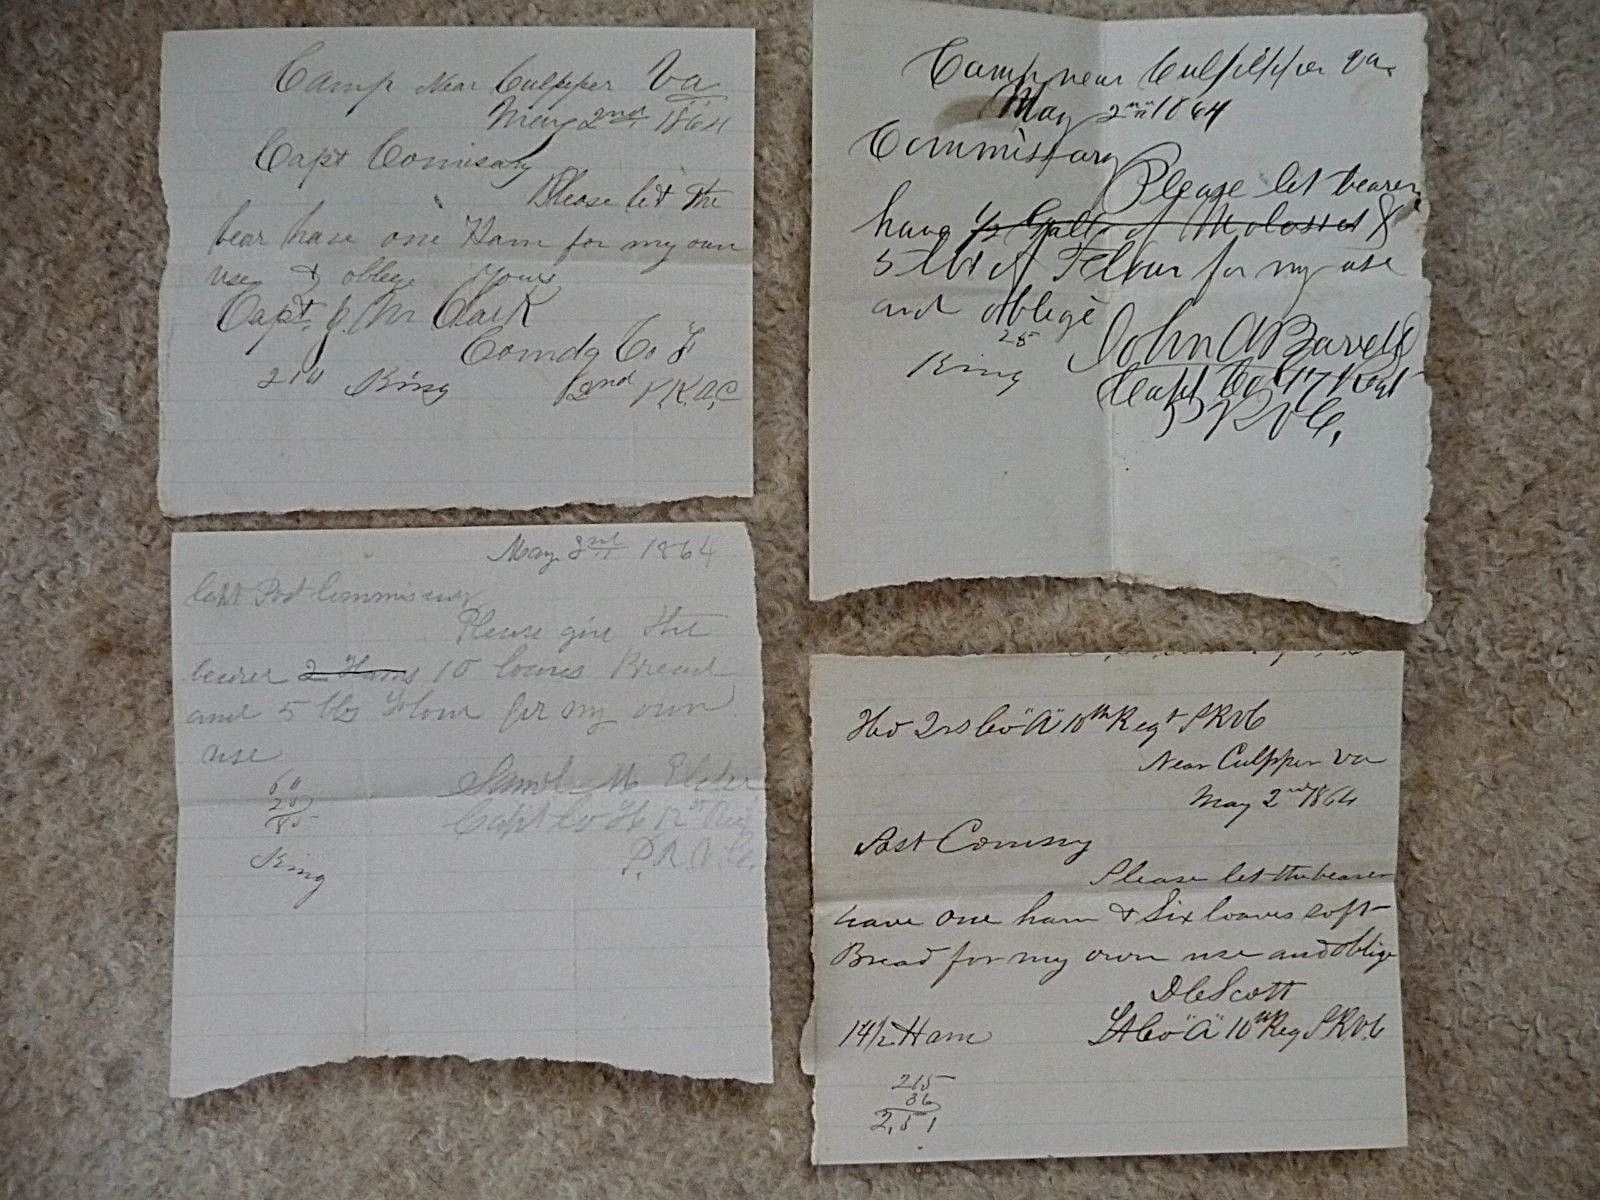 Camp Near Culpeper Va
May 2nd 1864
Capt Comisary
Please let the
bear have one Ham for my own
use & oblige Yours
Capt. J. M Clark
Comdg Co F
210 King 2nd P.R.V.C
Camp near Culpepper Va.
May 2nd 1864
Commissary
Please let bearer
have 1/2 Galls of Molasses &
5 lbs of Flour for my use
and oblige
25 John A Bavell
King Capt Co 7 Regt
P R V C.
May 2nd 1864
Capt Post Commissary
Please give the
bearer 2 Hams 10 loaves Bread
and 5 lbs Flour for my own
use
60
25
85
Saml M Elder
Capt Co H 12th Reg
P. R. V. C.
King
Hd Qrs Co "A" 10th Regt P R V C
Near Culpper Va
May 2nd 1864
Post Comssy
Please let the bearer
have one ham & Six loaves soft
Bread for my own use and oblige
D C Scott
14 1/2 Ham Lt Co "A" 10th Reg P R V. C
215
36
2,51